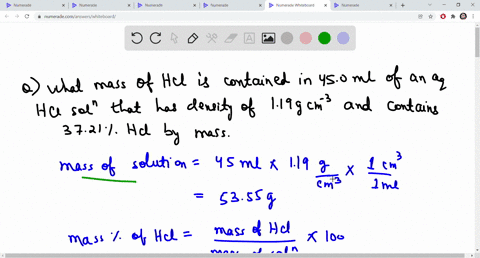 Numerade
Numerade
Numerade
Numerade
Numerade Whiteboard
Numerade
numerade.com/answers/whiteboard/
Q) What mass of HCl is contained in 45.0 ml of an aq
HCl solⁿ that has density of 1.19 g cm⁻³ and contains
37.21 % HCl by mass.
mass of solution = 45 ml × 1.19 g/cm³ × 1 cm³/1 ml
= 53.55 g
mass % of HCl = mass of HCl/mass of solⁿ × 100